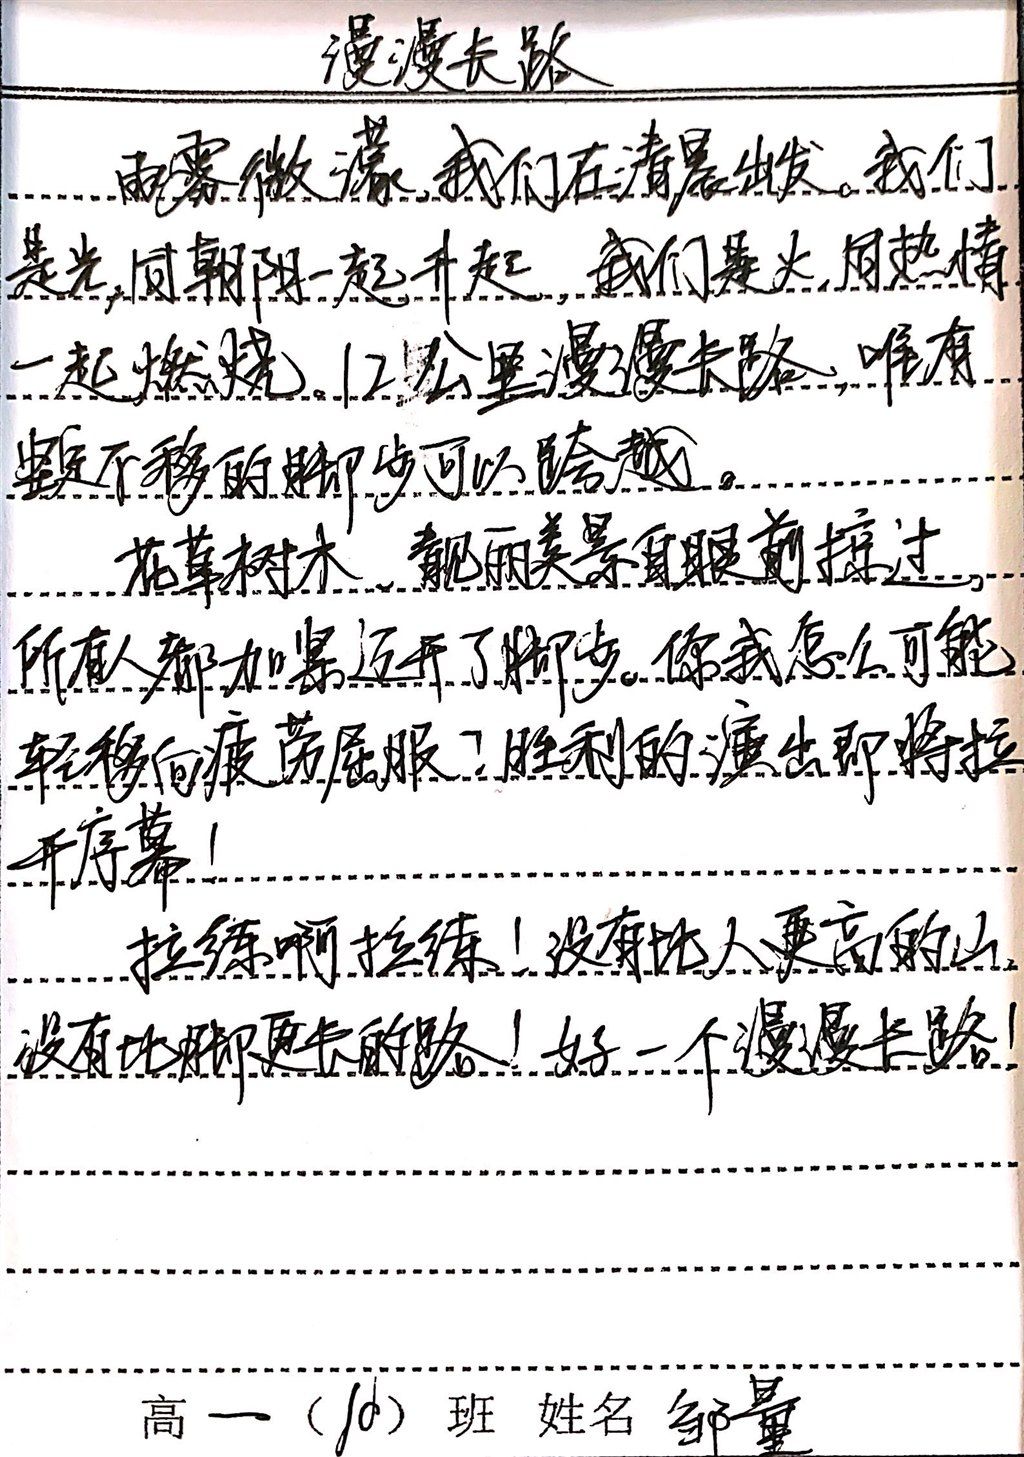 漫漫长路
雨雾微濛,我们在清晨出发。我们
是光,同朝阳一起升起,我们是火,用热情
一起燃烧。12公里漫漫长路,唯有
坚定不移的脚步可以跨越。
花草树木、靓丽美景自眼前掠过,
所有人都加紧迈开了脚步。你我怎么可能
轻移向疲劳屈服?胜利的演出即将拉
开序幕!
拉练啊拉练!没有比人更高的山,
没有比脚更长的路!好一个漫漫长路!
高一()班 姓名 邹量